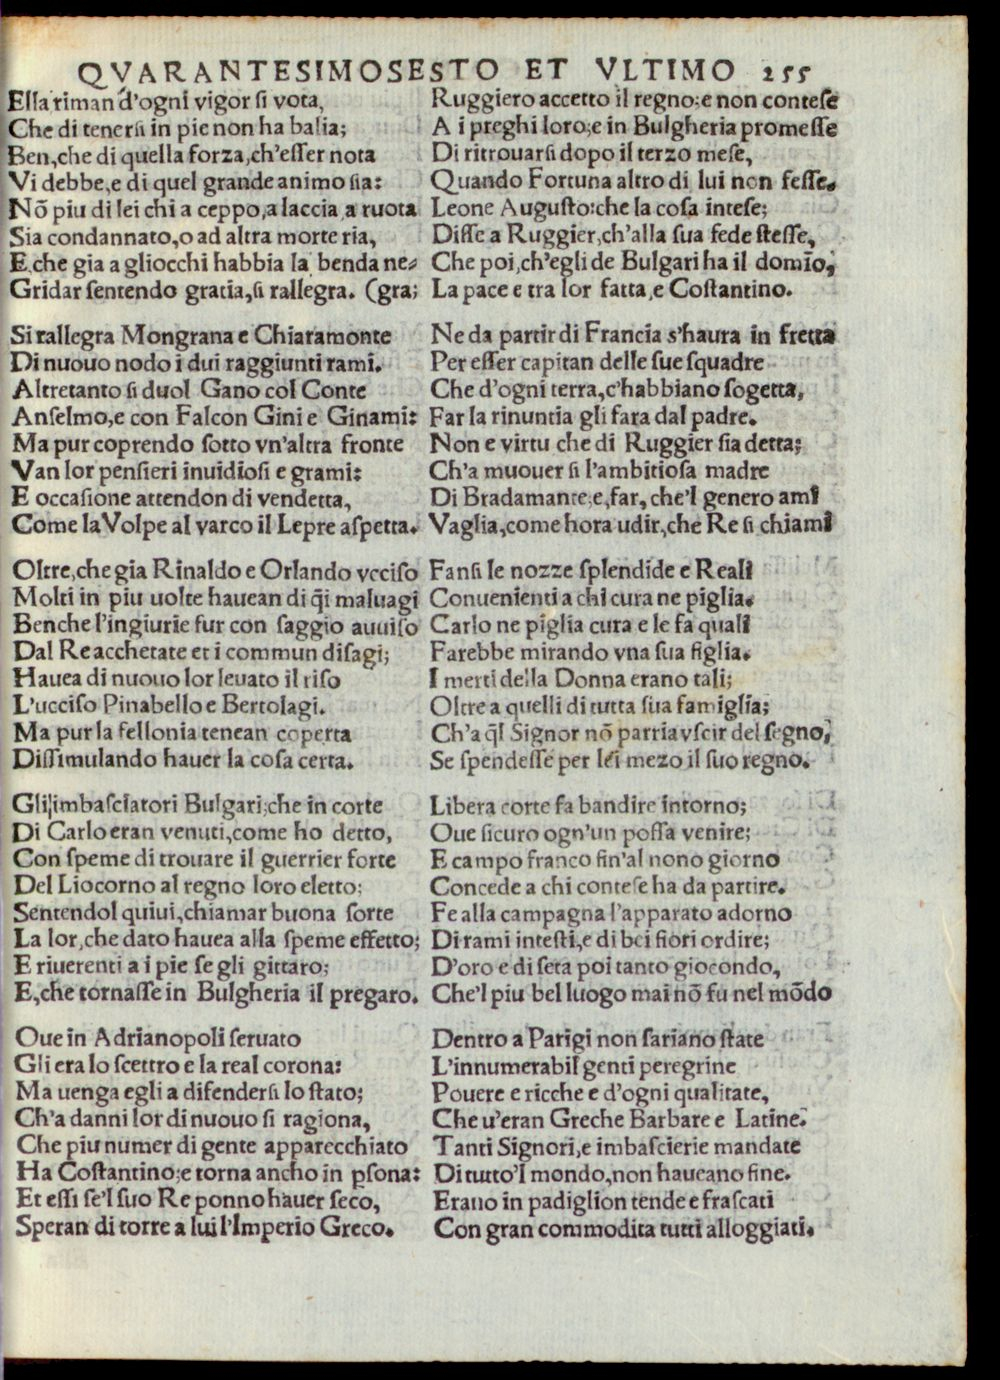 QVARANTESIMOSESTO ET VLTIMO 255
Ella riman d'ogni vigor si vota,
Che di tenersi in pie non ha balia;
Ben, che di quella forza, ch'esser nota
Vi debbe, e di quel grande animo sia:
Nō piu di lei chi a ceppo, a laccia, a ruota
Sia condannato, o ad altra morte ria,
E che gia a gliocchi habbia la benda ne-
Gridar sentendo gratia, si rallegra. (gra;
Si rallegra Mongrana e Chiaramonte
Di nuouo nodo i dui raggiunti rami.
Altretanto si duol Gano col Conte
Anselmo, e con Falcon Gini e Ginami:
Ma pur coprendo sotto vn'altra fronte
Van lor pensieri inuidiosi e grami:
E occasione attendon di vendetta,
Come la Volpe al varco il Lepre aspetta.
Oltre, che gia Rinaldo e Orlando vcciso
Molti in piu uolte hauean di q̃i maluagi
Benche l'ingiurie fur con saggio auuiso
Dal Re acchetate et i commun disagi;
Hauea di nuouo lor leuato il riso
L'ucciso Pinabello e Bertolagi.
Ma pur la fellonia tenean coperta
Dissimulando hauer la cosa certa.
Gli imbasciatori Bulgari, che in corte
Di Carlo eran venuti, come ho detto,
Con speme di trouare il guerrier forte
Del Liocorno al regno loro eletto;
Sentendol quiui, chiamar buona sorte
La lor, che dato hauea alla speme effetto;
E riuerenti a i pie se gli gittaro;
E, che tornasse in Bulgheria il pregaro.
Oue in Adrianopoli seruato
Gli era lo scettro e la real corona:
Ma uenga egli a difendersi lo stato;
Ch'a danni lor di nuouo si ragiona,
Che piu numer di gente apparecchiato
Ha Costantino; e torna ancho in psona:
Et essi se'l suo Re ponno hauer seco,
Speran di torre a lui l'Imperio Greco.
Ruggiero accetto il regno; e non contese
A i preghi loro; e in Bulgheria promesse
Di ritrouarsi dopo il terzo mese,
Quando Fortuna altro di lui non fesse.
Leone Augusto: che la cosa intese;
Disse a Ruggier, ch'alla sua fede stesse,
Che poi, ch'egli de Bulgari ha il domīo,
La pace e tra lor fatta, e Costantino.
Ne da partir di Francia s'haura in fretta
Per esser capitan delle sue squadre
Che d'ogni terra, c'habbiano sogetta,
Far la rinuntia gli fara dal padre.
Non e virtu che di Ruggier sia detta;
Ch'a muouer si l'ambitiosa madre
Di Bradamante, e, far, che'l genero ami
Vaglia, come hora udir, che Re si chiami
Fansi le nozze splendide e Reali
Conuenienti a chi cura ne piglia.
Carlo ne piglia cura e le fa quali
Farebbe mirando vna sua figlia.
I merti della Donna erano tali;
Oltre a quelli di tutta sua famiglia;
Ch'a q̃l Signor nō parria vscir del segno,
Se spendesse per lei mezo il suo regno.
Libera corte fa bandire intorno;
Oue sicuro ogn'un possa venire;
E campo franco fin'al nono giorno
Concede a chi contese ha da partire.
Fe alla campagna l'apparato adorno
Di rami intesti, e di bei fiori ordire;
D'oro e di seta poi tanto giocondo,
Che'l piu bel luogo mai nō fu nel mōdo
Dentro a Parigi non sariano state
L'innumerabil genti peregrine
Pouere e ricche e d'ogni qualitate,
Che u'eran Greche Barbare e Latine.
Tanti Signori, e imbascierie mandate
Di tutto'l mondo, non haueano fine.
Erano in padiglion tende e frascati
Con gran commodita tutti alloggiati.